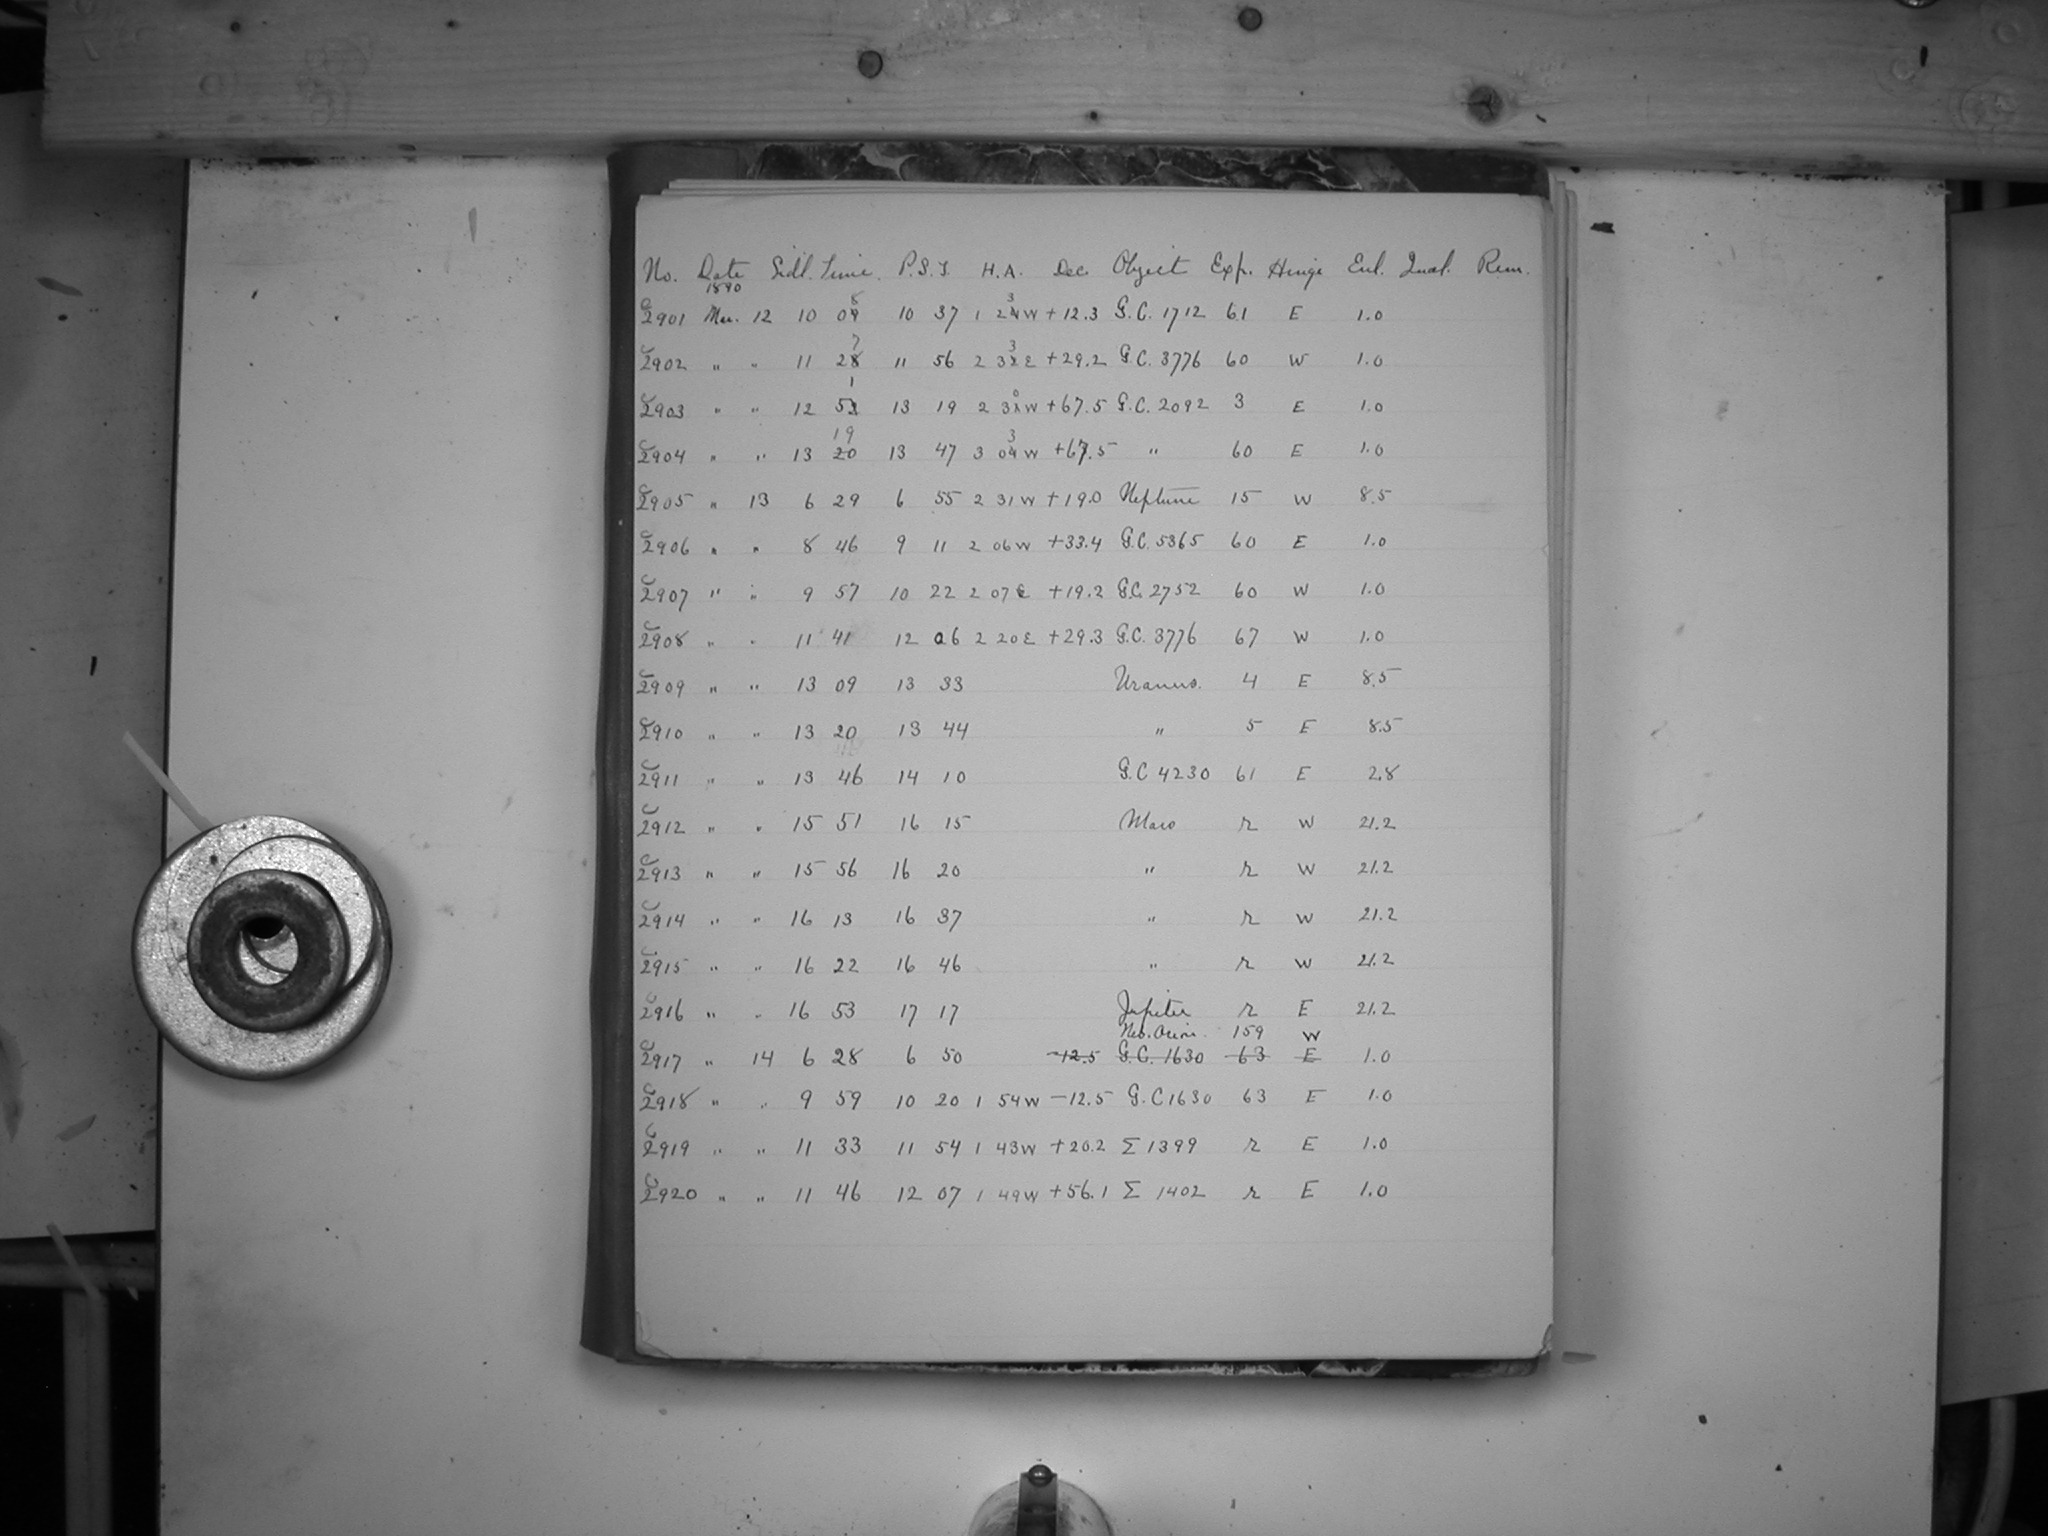 No. Date Sidl. Time. P.S.T. H.A. Dec. Object Exp. Hinge Enl. Qual. Rem.
1890 8 3
C 2901 Mar. 12 10 09 10 37 1 24 W +12.3 G.C. 1712 61 E 1.0
7 3
C 2902 " " 11 28 11 56 2 32 E +29.2 G.C. 3776 60 W 1.0
1 0
C 2903 " " 12 52 13 19 2 31 W +67.5 G.C. 2092 3 E 1.0
19 3
C 2904 " " 13 20 13 47 3 04 W +67.5 " 60 E 1.0
C 2905 " 13 6 29 6 55 2 31 W +19.0 Neptune 15 W 8.5
C 2906 " " 8 46 9 11 2 06 W +33.4 G.C. 5365 60 E 1.0
C 2907 " " 9 57 10 22 2 07 E +19.2 G.C. 2752 60 W 1.0
C 2908 " " 11 41 12 06 2 20 E +29.3 G.C. 3776 67 W 1.0
C 2909 " " 13 09 13 33 Uranus. 4 E 8.5
C 2910 " " 13 20 13 44 " 5 E 8.5
C 2911 " " 13 46 14 10 G.C 4230 61 E 2.8
C 2912 " " 15 51 16 15 Mars r W 21.2
C 2913 " " 15 56 16 20 " r W 21.2
C 2914 " " 16 13 16 37 " r W 21.2
C 2915 " " 16 22 16 46 " r W 21.2
C 2916 " " 16 53 17 17 Jupiter r E 21.2
Neb. Orion. 159 W
C 2917 " 14 6 28 6 50 -12.5 G.C. 1630 63 E 1.0
C 2918 " " 9 59 10 20 1 54 W -12.5 G.C 1630 63 E 1.0
C 2919 " " 11 33 11 54 1 43 W +20.2 Σ 1399 r E 1.0
C 2920 " " 11 46 12 07 1 49 W +56.1 Σ 1402 r E 1.0